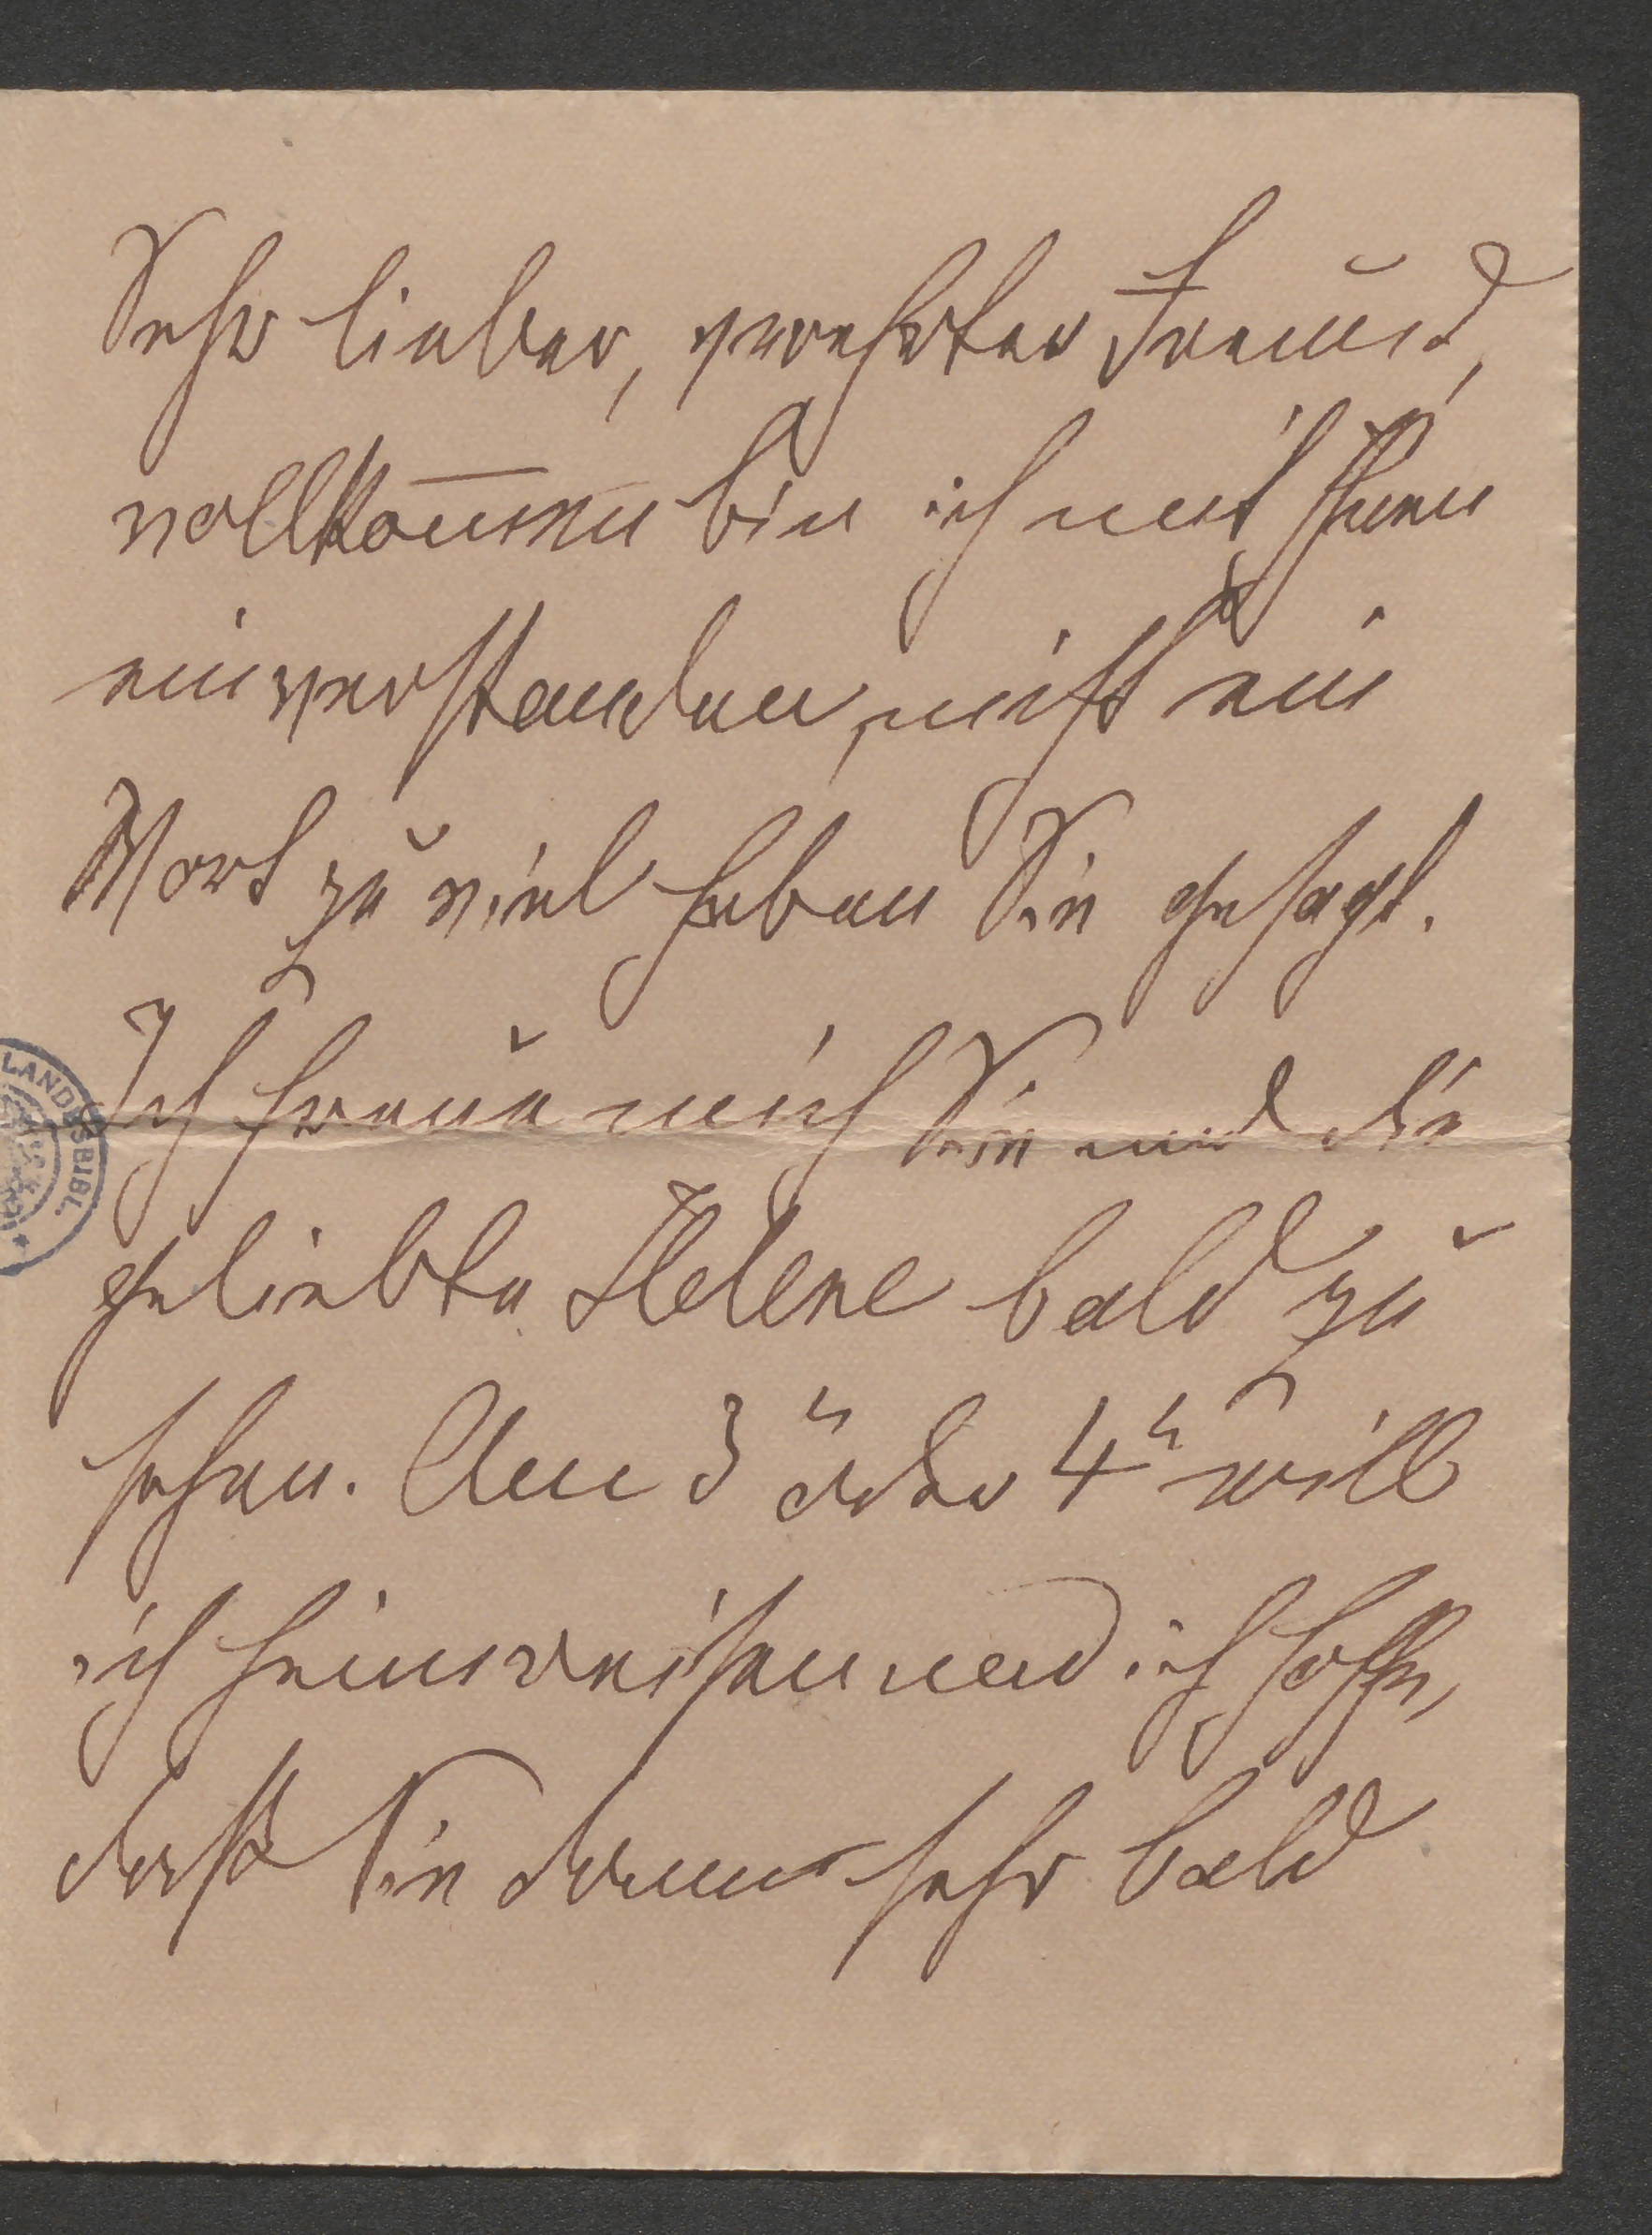 Sehr lieber, verehrter Freund,
vollkom̄men bin ich mit Ihnen
einverstanden, nicht ein
Wort zu viel haben Sie gesagt.
Ich freue mich Sie und die
geliebte Helene bald zu
sehen. Am 3ⁿ oder 4ⁿ will
ich heimreisen und ich hoffe,
daß Sie dann sehr bald
LANDESBIBL.